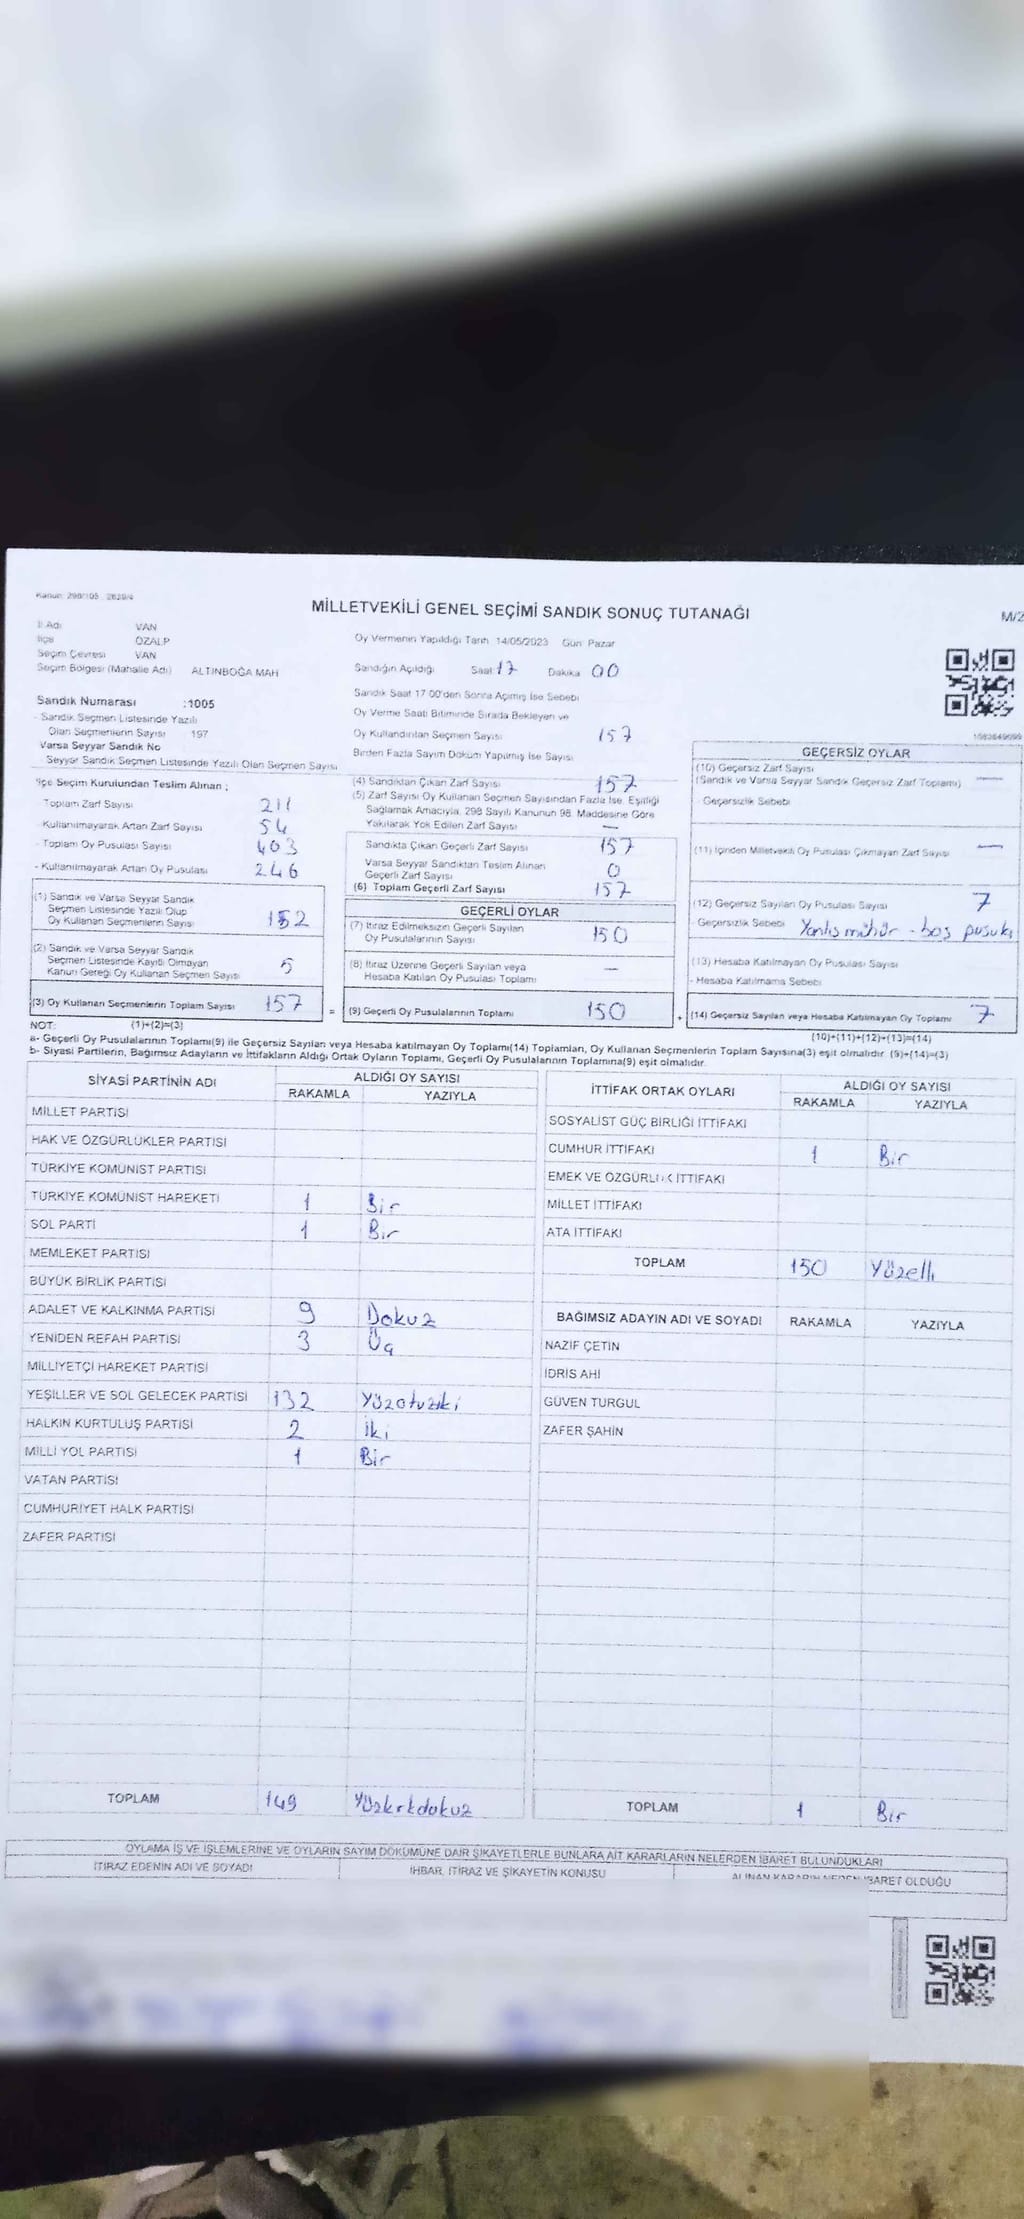 Kanun: 298/105 2839/4
MİLLETVEKİLİ GENEL SEÇİMİ SANDIK SONUÇ TUTANAĞI
M/2
İl Adı VAN
İlçe ÖZALP
Seçim Çevresi VAN
Seçim Bölgesi (Mahalle Adı) ALTINBOĞA MAH
Oy Vermenin Yapıldığı Tarih 14/05/2023 Gün: Pazar
Sandığın Açıldığı Saat: 17 Dakika 00
Sandık Saat 17 00'den Sonra Açılmış İse Sebebi
Oy Verme Saati Bitiminde Sırada Bekleyen ve
Oy Kullandırılan Seçmen Sayısı 157
Birden Fazla Sayım Döküm Yapılmış İse Sayısı
Sandık Numarası :1005
- Sandık Seçmen Listesinde Yazılı
Olan Seçmenlerin Sayısı 197
Varsa Seyyar Sandık No
Seyyar Sandık Seçmen Listesinde Yazılı Olan Seçmen Sayısı
İlçe Seçim Kurulundan Teslim Alınan ;
Toplam Zarf Sayısı 211
- Kullanılmayarak Artan Zarf Sayısı 54
- Toplam Oy Pusulası Sayısı 403
- Kullanılmayarak Artan Oy Pusulası 246
(1) Sandık ve Varsa Seyyar Sandık
Seçmen Listesinde Yazılı Olup
Oy Kullanan Seçmenlerin Sayısı 152
(2) Sandık ve Varsa Seyyar Sandık
Seçmen Listesinde Kayıtlı Olmayan
Kanun Gereği Oy Kullanan Seçmen Sayısı 5
(3) Oy Kullanan Seçmenlerin Toplam Sayısı 157
(4) Sandıktan Çıkan Zarf Sayısı 157
(5) Zarf Sayısı Oy Kullanan Seçmen Sayısından Fazla İse, Eşitliği
Sağlamak Amacıyla, 298 Sayılı Kanunun 98. Maddesine Göre
Yakılarak Yok Edilen Zarf Sayısı —
Sandıkta Çıkan Geçerli Zarf Sayısı 157
Varsa Seyyar Sandıktan Teslim Alınan
Geçerli Zarf Sayısı 0
(6) Toplam Geçerli Zarf Sayısı 157
GEÇERLİ OYLAR
(7) İtiraz Edilmeksizin Geçerli Sayılan
Oy Pusulalarının Sayısı 150
(8) İtiraz Üzerine Geçerli Sayılan veya
Hesaba Katılan Oy Pusulası Toplamı —
= (9) Geçerli Oy Pusulalarının Toplamı 150
GEÇERSİZ OYLAR
(10) Geçersiz Zarf Sayısı
(Sandık ve Varsa Seyyar Sandık Geçersiz Zarf Toplamı) —
- Geçersizlik Sebebi
(11) İçinden Milletvekili Oy Pusulası Çıkmayan Zarf Sayısı —
(12) Geçersiz Sayılan Oy Pusulası Sayısı 7
Geçersizlik Sebebi Yanlış mühür - boş pusula
(13) Hesaba Katılmayan Oy Pusulası Sayısı
- Hesaba Katılmama Sebebi
+ (14) Geçersiz Sayılan veya Hesaba Katılmayan Oy Toplamı 7
NOT: (1)+(2)=(3) (10)+(11)+(12)+(13)=(14)
a- Geçerli Oy Pusulalarının Toplamı(9) ile Geçersiz Sayılan veya Hesaba katılmayan Oy Toplamı(14) Toplamları, Oy Kullanan Seçmenlerin Toplam Sayısına(3) eşit olmalıdır. (9)+(14)=(3)
b- Siyasi Partilerin, Bağımsız Adayların ve İttifakların Aldığı Ortak Oyların Toplamı, Geçerli Oy Pusulalarının Toplamına(9) eşit olmalıdır.
SİYASİ PARTİNİN ADI ALDIĞI OY SAYISI
RAKAMLA YAZIYLA
MİLLET PARTİSİ
HAK VE ÖZGÜRLÜKLER PARTİSİ
TÜRKİYE KOMÜNİST PARTİSİ
TÜRKİYE KOMÜNİST HAREKETİ 1 Bir
SOL PARTİ 1 Bir
MEMLEKET PARTİSİ
BÜYÜK BİRLİK PARTİSİ
ADALET VE KALKINMA PARTİSİ 9 Dokuz
YENİDEN REFAH PARTİSİ 3 Üç
MİLLİYETÇİ HAREKET PARTİSİ
YEŞİLLER VE SOL GELECEK PARTİSİ 132 Yüzotuziki
HALKIN KURTULUŞ PARTİSİ 2 İki
MİLLİ YOL PARTİSİ 1 Bir
VATAN PARTİSİ
CUMHURİYET HALK PARTİSİ
ZAFER PARTİSİ
TOPLAM 149 Yüzkrkdokuz
İTTİFAK ORTAK OYLARI ALDIĞI OY SAYISI
RAKAMLA YAZIYLA
SOSYALİST GÜÇ BİRLİĞİ İTTİFAKI
CUMHUR İTTİFAKI 1 Bir
EMEK VE ÖZGÜRLÜK İTTİFAKI
MİLLET İTTİFAKI
ATA İTTİFAKI
TOPLAM 150 Yüzelli
BAĞIMSIZ ADAYIN ADI VE SOYADI RAKAMLA YAZIYLA
NAZİF ÇETİN
İDRİS AHİ
GÜVEN TURGUL
ZAFER ŞAHİN
TOPLAM 1 Bir
OYLAMA İŞ VE İŞLEMLERİNE VE OYLARIN SAYIM DÖKÜMÜNE DAİR ŞİKAYETLERLE BUNLARA AİT KARARLARIN NELERDEN İBARET BULUNDUKLARI
İTİRAZ EDENİN ADI VE SOYADI İHBAR, İTİRAZ VE ŞİKAYETİN KONUSU ALINAN KARARIN NEDEN İBARET OLDUĞU